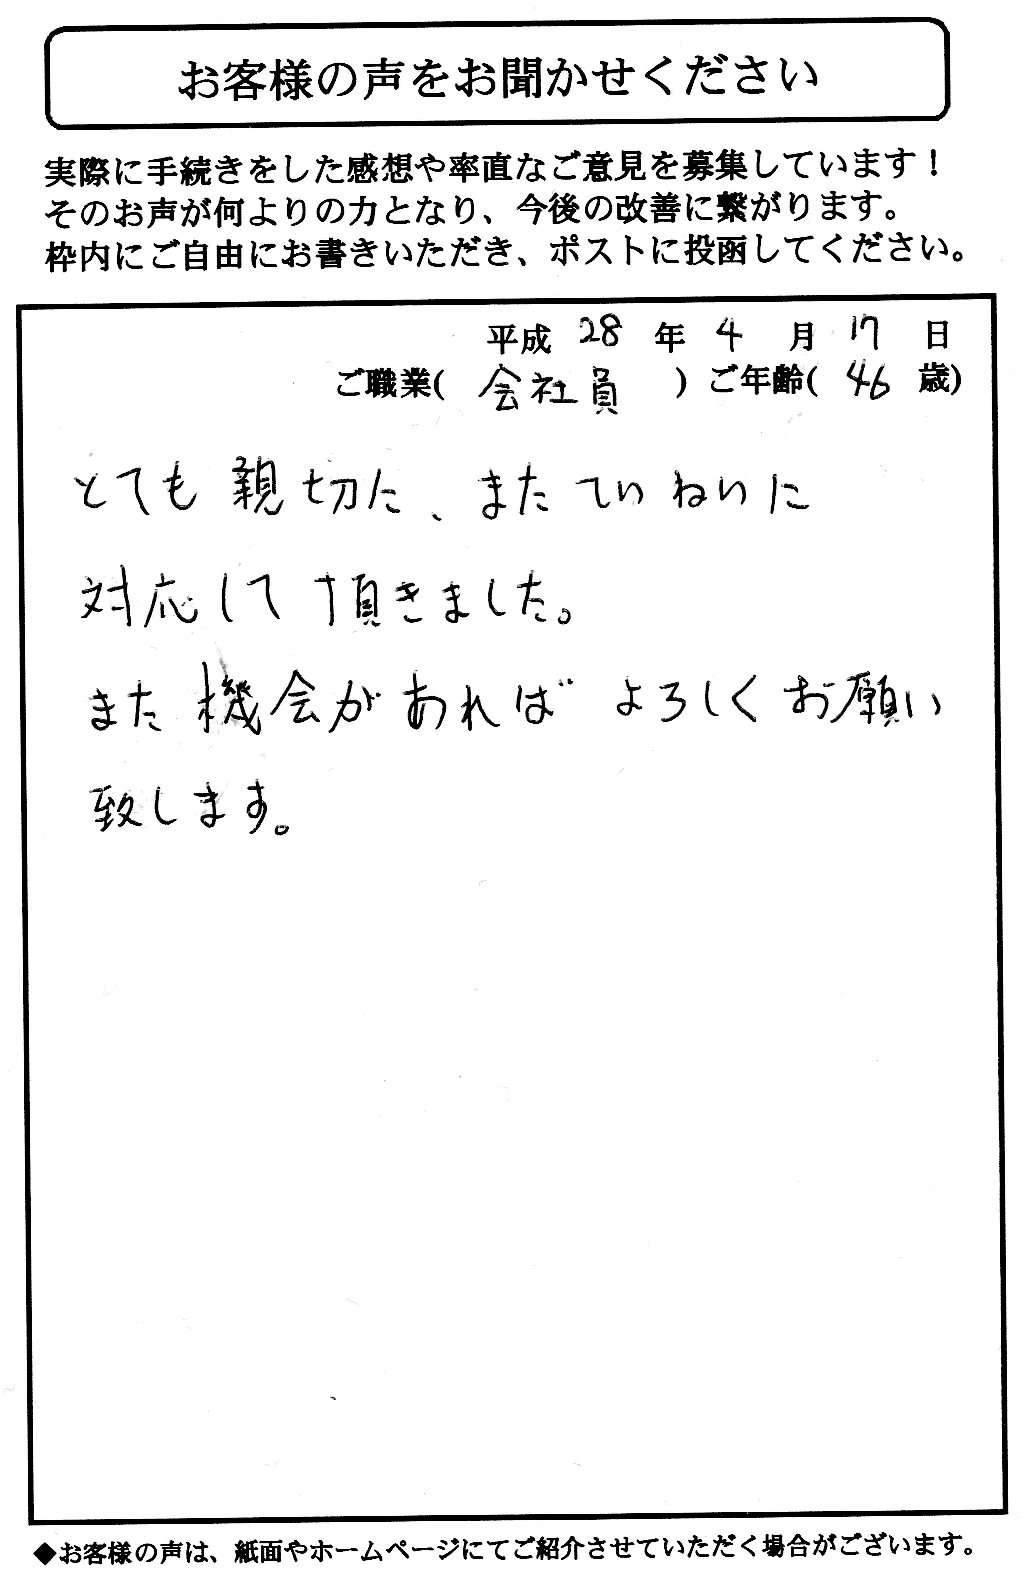 お客様の声をお聞かせください
実際に手続きをした感想や率直なご意見を募集しています！
そのお声が何よりの力となり、今後の改善に繋がります。
枠内にご自由にお書きいただき、ポストに投函してください。
平成 28 年 4 月 17 日
ご職業( 会社員 ) ご年齢( 46 歳)
とても親切に、またていねいに
対応して頂きました。
また機会があればよろしくお願い
致します。
◆お客様の声は、紙面やホームページにてご紹介させていただく場合がございます。